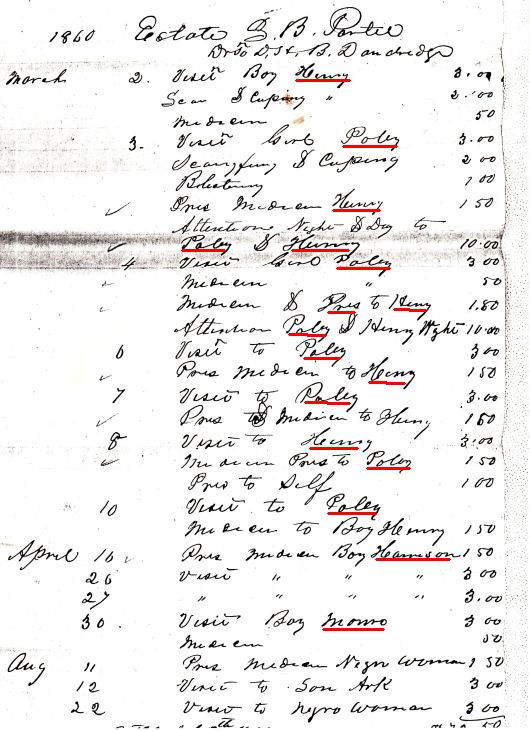 1860 Estate S. B.
Dr To Drs & B. Dandridge
March 2. Visit Boy Henry 3.00
Scar & Cuping " 2.00
Medicin 50
3. Visit Girl Poley 3.00
Scaryfying & Cuping 2 00
Blestering 1 00
Pres Medicin Henry 1 50
Attention Night & Day to
Poley & Henry 10.00
4 Visit Girl Poley 3 00
Medicin " 50
Medicin & Pres to Heny 1.50
Attention Poley & Henry Night 10.00
6 Visit to Poley 3 00
Pres Medicin to Heny 1 50
7 Visit to Poley 3.00
Pres & Medicin to Heny 1 50
8 Visit to Henry 3.00
Medicin Pres to Poley 1 50
Pres to Self 1 00
10 Visit to Poley
Medicin to Boy Henry 1 50
April 16 Pres Medicin Boy Harrison 1 50
26 Visit " " " 3 00
27 " " " " 3.00
30 Visit Boy Monro 3 00
Medicin 50
Aug " Pres Medicin Negro Woman 1 50
12 Visit to Son Ark 3 00
22 Visit to Negro Woman 3 00